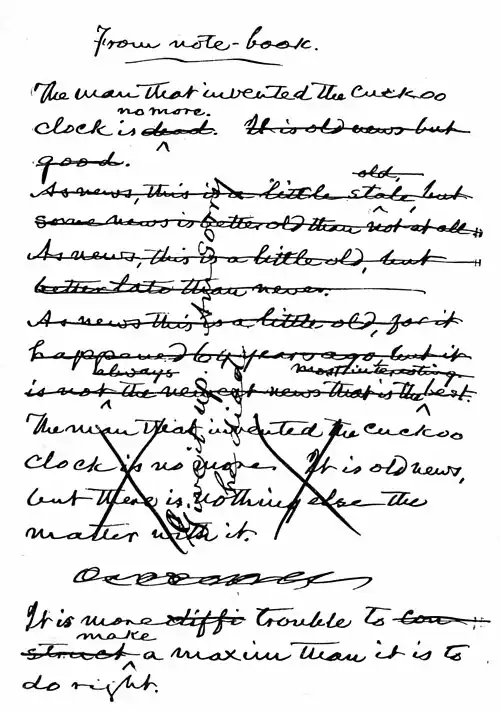 From note-book.
The man that invented the cuckoo
no more.
clock is dead. It is old news but
good.
old,
As news, this is a little stale, but
some news is better old than not at all.
As news, this is a little old, but
better late than never.
As news this is a little old, for it
happened 64 years ago, but it
always most interesting
is not the newest news that is the best.
The man that invented the cuckoo
clock is no more. It is old news,
but there is nothing else the
matter with it.
Give it up. Am sorry
he died
It is more diffi trouble to con-
make
struct a maxim than it is to
do right.